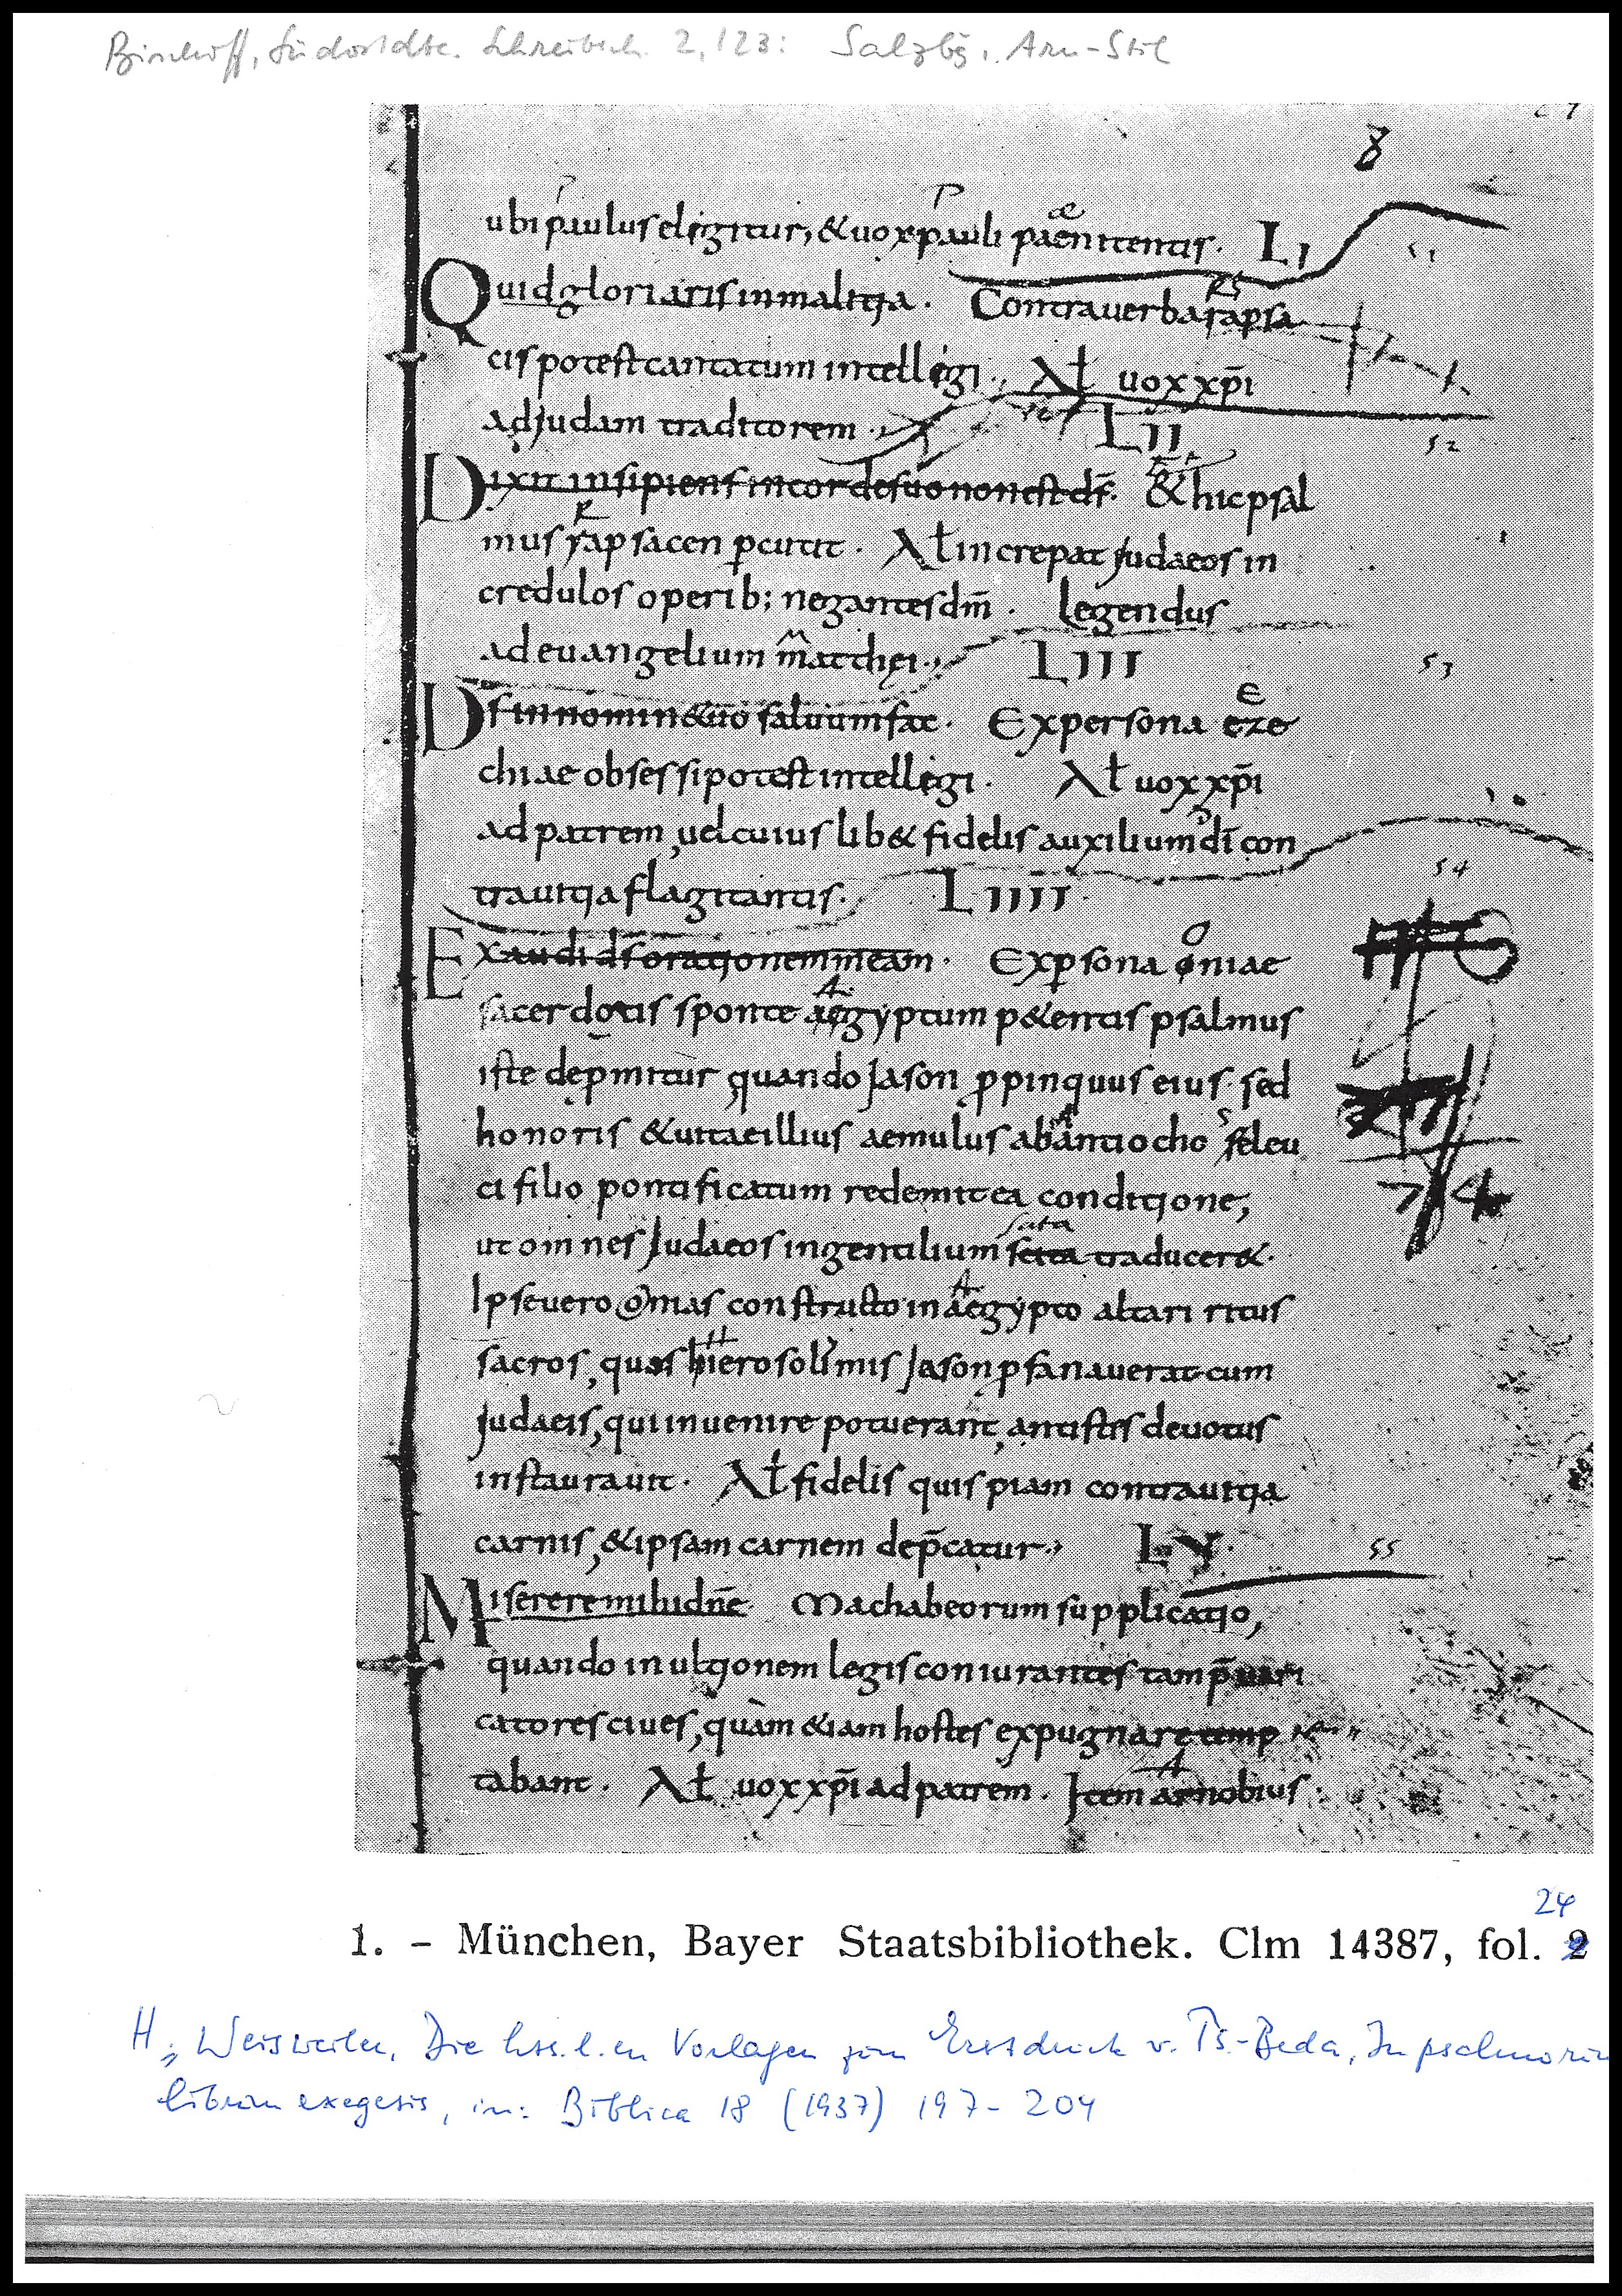 Bischoff, Südostdte. Schreibsch. 2, 123: Salzbg., Arn-Stil
8
ubi paulus eligitur, & uox pauli paenitentis. LI
51
Quid gloriaris in malitia. Contra uerba rapsa
cis potest cantatum intellegi. Ał uox xp̄i
ad judam traditorem. LII
52
Dixit insipiens in corde suo non est ds̄. & hic psal
mus rapsacen pcutit. Ał increpat judaeos in
credulos operib; negantes dm̄. Legendus
ad euangelium matthei. LIII
53
Ds in nomine tuo saluum fac. Ex persona eze
chiae obsessi potest intellegi. Ał uox xp̄i
ad patrem, uel cuiuslib& fidelis auxilium di con
tra uitia flagitantis. LIIII
54
Exaudi ds orationem meam. Ex psona oniae
sacerdotis sponte aegyptum p&entis psalmus
iste depmitur quando Jason ppinquus eius. sed
honoris & uitae illius aemulus ab antiocho seleu
ci filio pontificatum redemit ea conditione,
sata
ut omnes Judaeos in gentilium traducer&.
Ipse uero onias constructo in aegypto altari ritus
sacros, quos hierosolimis Jason pfanauerat cum
judaeis, qui inuenire potuerant, antistis deuotus
instaurauit. Ał fidelis quispiam contra uitia
74
carnis, & ipsam carnem dep̄catur. LV
55
Miserere mihi dn̄e Machabeorum supplicatio,
quando in ultionem legis coniurantes tam p̄uari
catores ciues, quàm &iam hostes expugnare temp
tabant. Ał uox xp̄i ad patrem. Item arnobius.
24
1. – München, Bayer Staatsbibliothek. Clm 14387, fol. 2
H. Weisweiler, Die hss.l.en Vorlagen zum Erstdruck v. Ps.-Beda, In psalmorum
librum exegesis, in: Biblica 18 (1937) 197-204